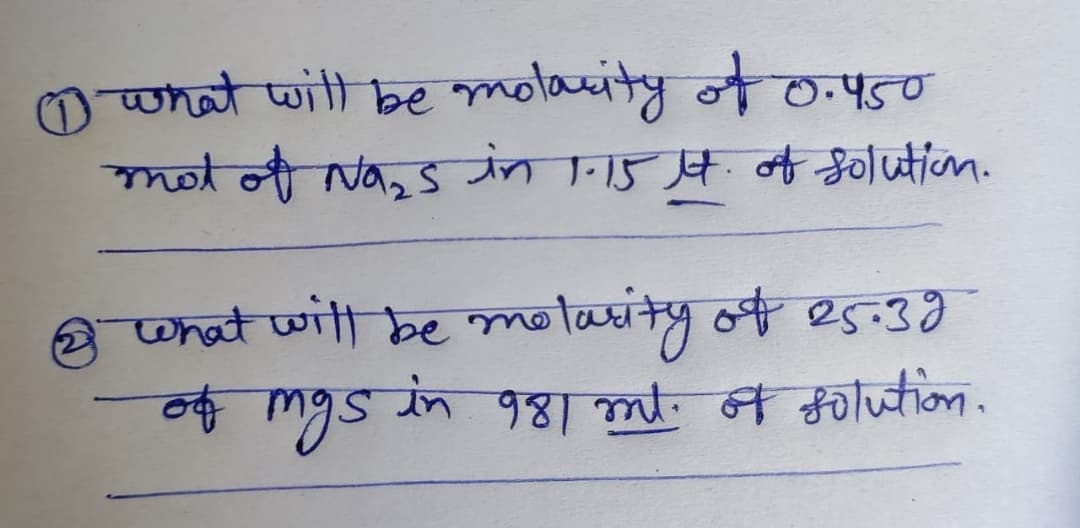 ① what will be molarity of 0.450
mol of Na₂S in 1.15 lt. of solution.
② what will be molarity of 25.3g
of mgs in 981 ml. of solution.